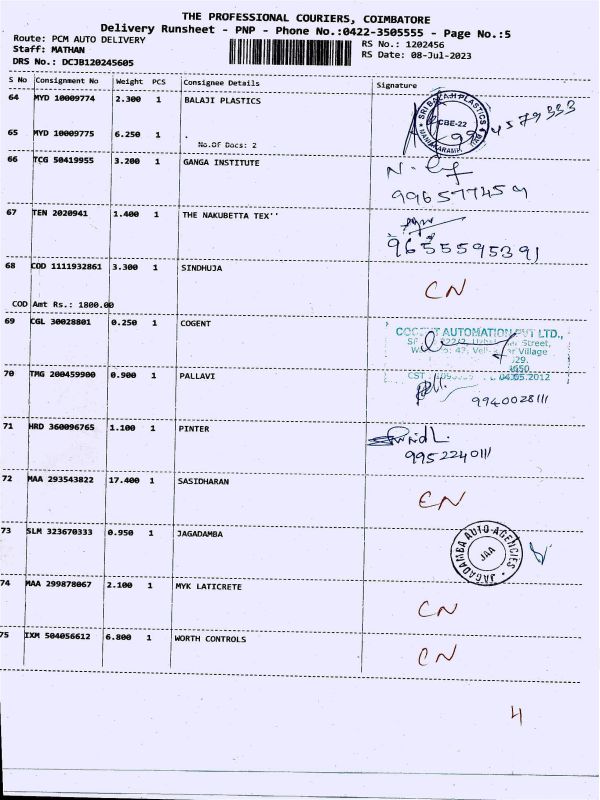 THE PROFESSIONAL COURIERS, COIMBATORE
Delivery Runsheet - PNP - Phone No.:0422-3505555 - Page No.:5
Route: PCM AUTO DELIVERY
RS No.: 1202456
Staff: MATHAN
RS Date: 08-Jul-2023
DRS No.: DCJB120245605
S No Consignment No Weight PCS Consignee Details Signature
64 MYD 10009774 2.300 1 BALAJI PLASTICS
SRI BALAJI PLASTICS
CBE-22
65 MYD 10009775 6.250 1 .
No.Of Docs: 2
66 TCG 50419955 3.200 1 GANGA INSTITUTE
9965774559
67 TEN 2020941 1.400 1 THE NAKUBETTA TEX''
9655595391
68 COD 1111932861 3.300 1 SINDHUJA
CN
COD Amt Rs.: 1800.00
69 CGL 30028801 0.250 1 COGENT
AUTOMATION PVT LTD.,
Street,
Village
04.05.2012
70 TMG 200459900 0.900 1 PALLAVI
9940028111
71 HRD 360096765 1.100 1 PINTER
9952240111
72 MAA 293543822 17.400 1 SASIDHARAN
CN
73 SLM 323670333 0.950 1 JAGADAMBA
JAGADAMBA AUTO AGENCIES
JAA
74 MAA 299878067 2.100 1 MYK LATICRETE
CN
75 IXM 504056612 6.800 1 WORTH CONTROLS
CN
4